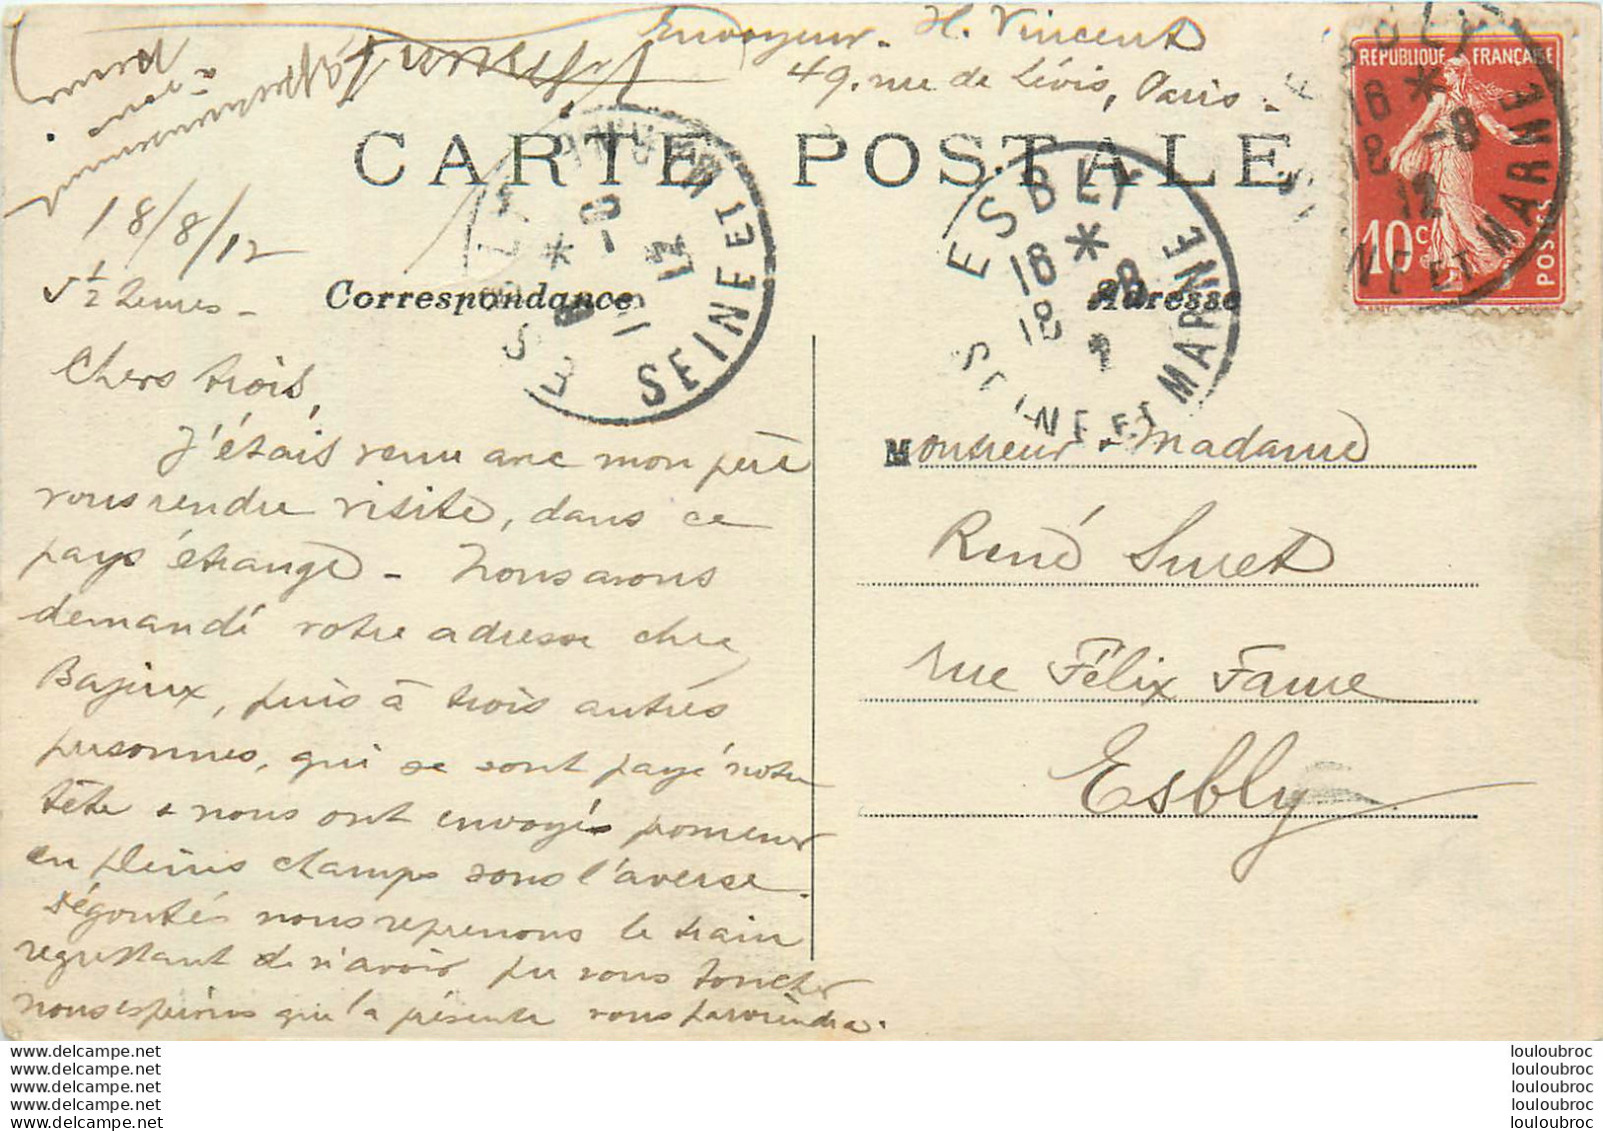 Envoyeur - H. Vincent
49, rue de Lévis, Paris -
CARTE POSTALE
RÉPUBLIQUE FRANÇAISE
10c
POSTES
ESBLY
18 * 18 -8 12
SEINE ET MARNE
ESBLY
18 * 18 8 1
SEINE ET MARNE
ESBLY
SEINE ET
Correspondance
Adresse
18/8/12
5 1/2 heures -
Chers trois,
J'étais venu avec mon père
vous rendre visite, dans ce
pays étrange - Nous avons
demandé votre adresse chez
Bajeux, puis à trois autres
personnes, qui se sont payé notre
tête & nous ont envoyés promener
en pleins champs sous l'averse.
Dégoutés nous reprenons le train
regrettant de n'avoir pu vous toucher
nous espérons que la présente vous parviendra.
Monsieur & Madame
René Suret
rue Félix Faure
Esbly
www.delcampe.net
www.delcampe.net
www.delcampe.net
www.delcampe.net
www.delcampe.net
louloubroc
louloubroc
louloubroc
louloubroc
louloubroc